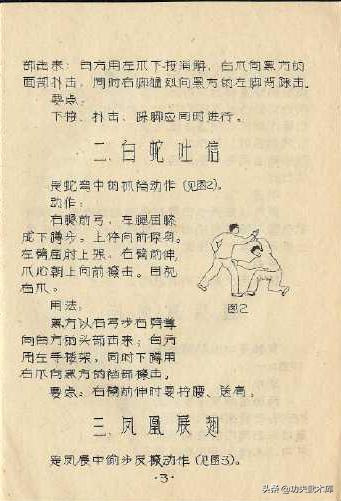 部击来：白方用左爪下按消解，右爪向黑方的
面部扑击，同时右脚猛烈向黑方的左脚背跺击。
要点：
下按、扑击、跺脚应同时进行。
二 白蛇吐信
是蛇弯中的抓裆动作（见图2）。
动作：
右腿前弓，左腿屈膝
成下蹲步。上体向前探身。
左臂屈肘上架，右臂前伸，
爪心朝上向前撩击。目视
右爪。
图2
用法：
黑方以右弓步右劈掌
向白方的头部击来；白方
用左手搂架，同时下蹲用
右爪向黑方的裆部撩击。
要点：右臂前伸时要拧腰、送肩。
三 凤凰展翅
是凤展中偷步反撩动作（见图3）。
·3·
头条@功夫武术库